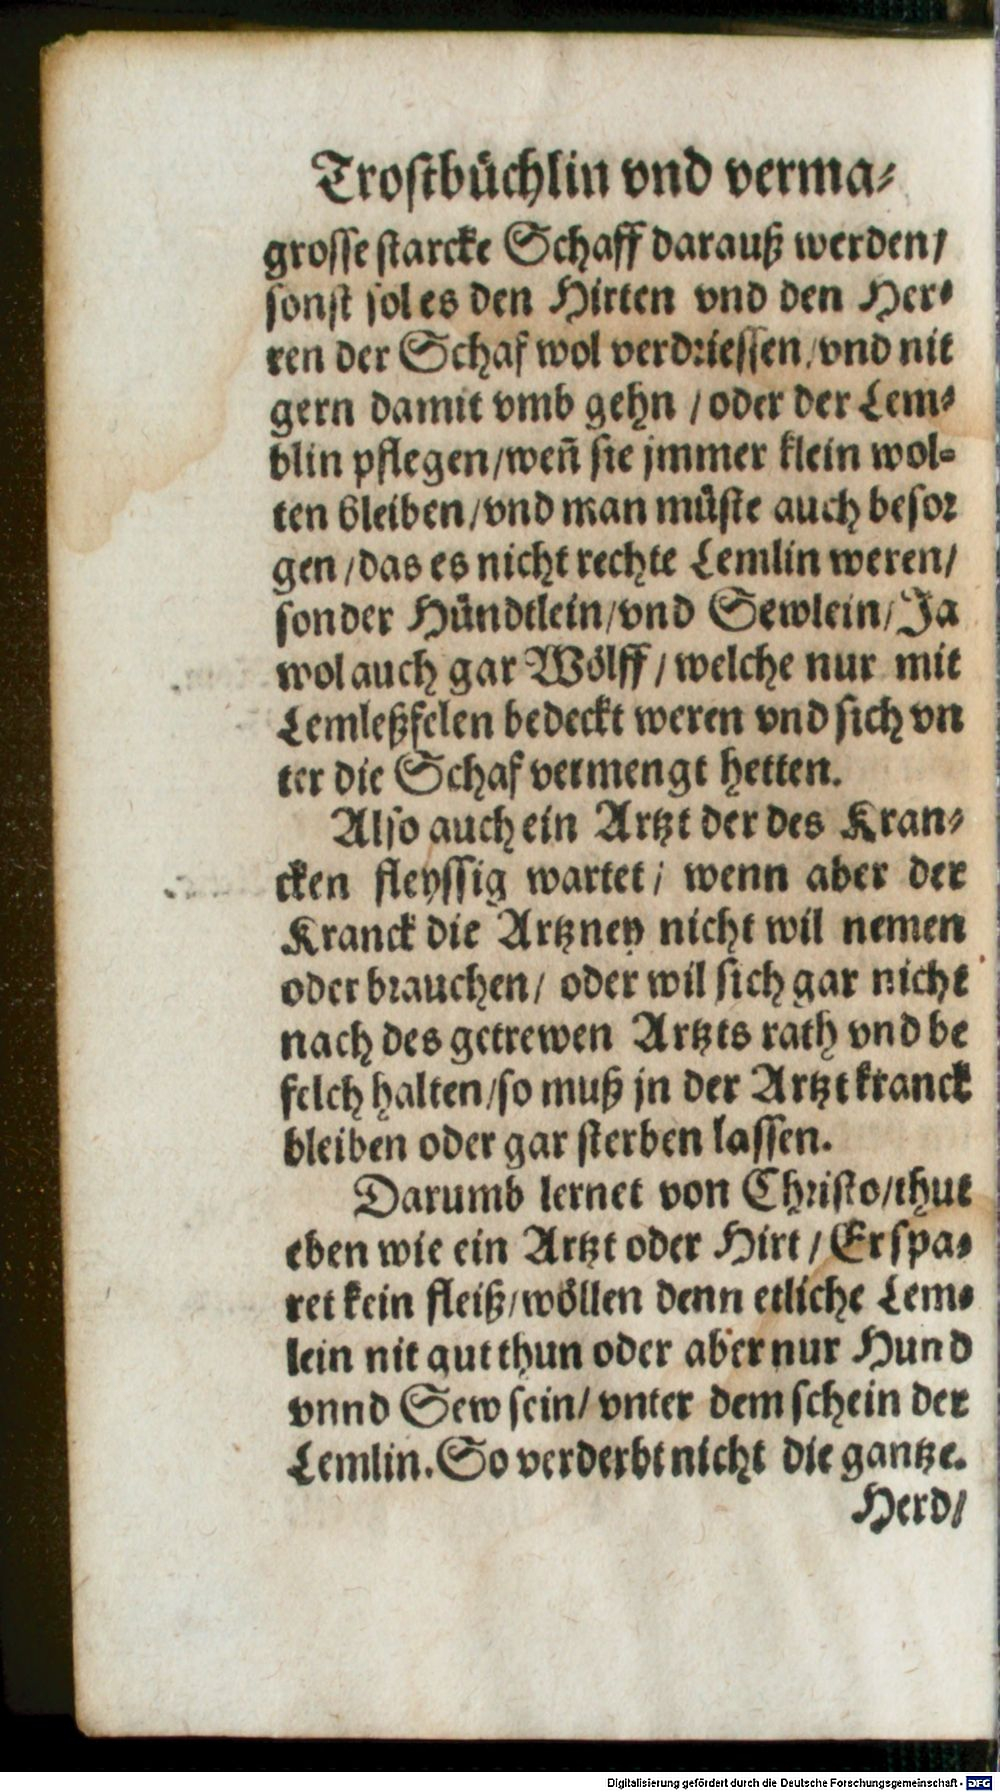 Trostbüchlin vnd verma⸗
grosse starcke Schaff darauß werden/
sonst sol es den Hirten vnd den Her⸗
ren der Schaf wol verdriessen/vnd nit
gern damit vmb gehn / oder der Lem⸗
blin pflegen/weñ sie jmmer klein wol⸗
ten bleiben/vnd man müste auch besor
gen/das es nicht rechte Lemlin weren/
sonder Hündtlein/vnd Sewlein/Ja
wol auch gar Wölff / welche nur mit
Lemleßfelen bedeckt weren vnd sich vn
ter die Schaf vermengt hetten.
Also auch ein Artzt der des Kran⸗
cken fleyssig wartet/ wenn aber der
Kranck die Artzney nicht wil nemen
oder brauchen/ oder wil sich gar nicht
nach des getrewen Artzts rath vnd be
felch halten/so muß jn der Artzt kranck
bleiben oder gar sterben lassen.
Darumb lernet von Christo/thut
eben wie ein Artzt oder Hirt / Er spa⸗
ret kein fleiß/wöllen denn etliche Lem⸗
lein nit gut thun oder aber nur Hund
vnnd Sew sein/ vnter dem schein der
Lemlin. So verderbt nicht die gantze.
Herd/
Digitalisierung gefördert durch die Deutsche Forschungsgemeinschaft - DFG